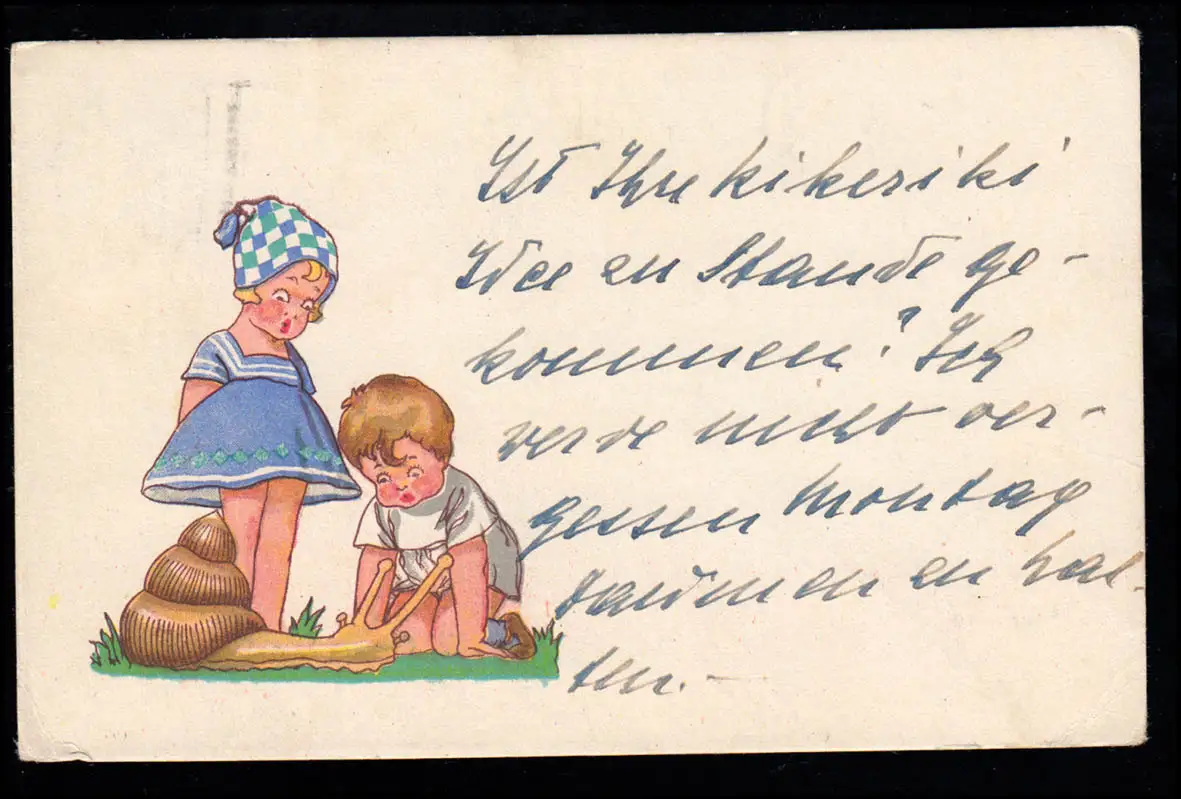 Ist Ihre kikeriki
Idee zu Stande ge-
kommen? Ich
werde nicht ver-
gessen Montag
daumen zu hal-
ten.-